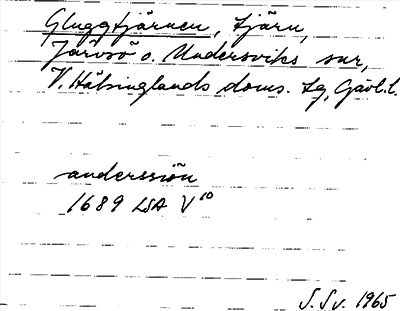 Gluggtjärnen, tjärn,
Järvsö o. Undersviks snr,
V. Hälsinglands doms. tg, Gävl. l.
anderssiön
1689 LSA V¹⁰
S. Sv. 1965